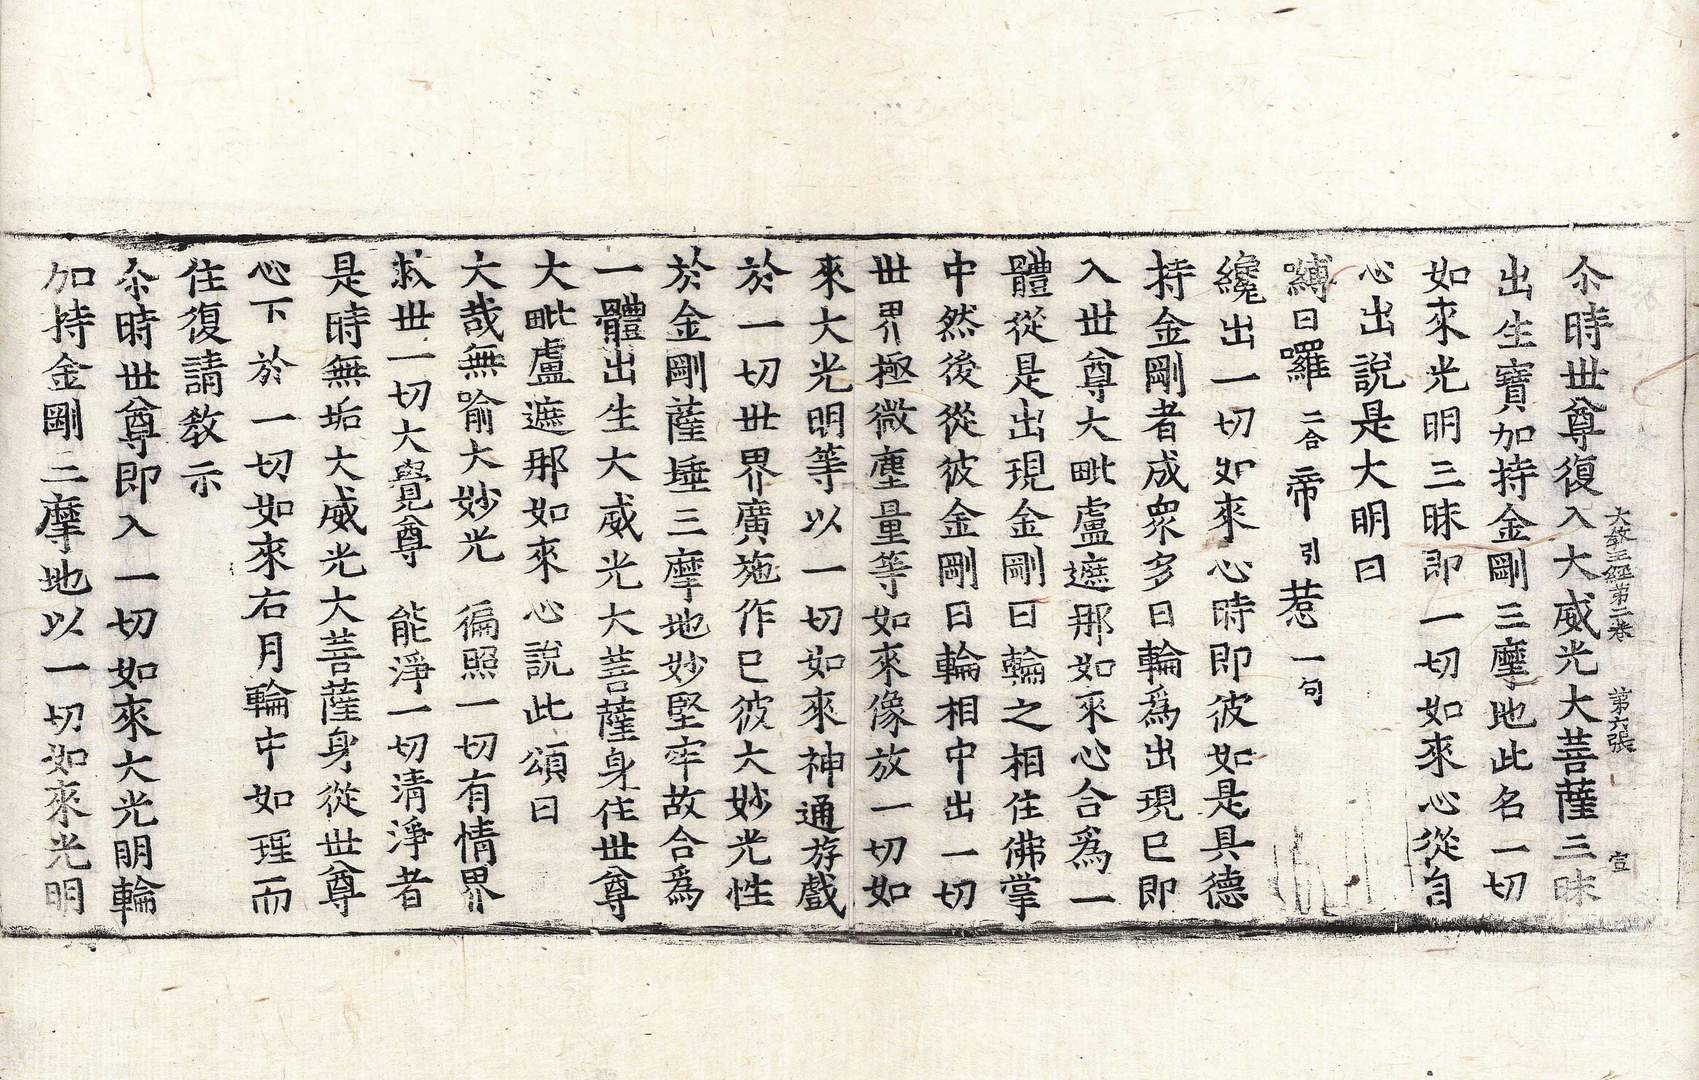 尒時世尊復入大威光大菩薩三昧
大教王經第二卷　第六張　宣
出生寶加持金剛三摩地此名一切
如來光明三昧即一切如來心從自
心出說是大明曰
嚩日囉二合帝引惹一句
纔出一切如來心時即彼如是具德
持金剛者成衆多日輪爲出現已即
入世尊大毗盧遮那如來心合爲一
體從是出現金剛日輪之相住佛掌
中然後從彼金剛日輪相中出一切
世界極微塵量等如來像放一切如
來大光明等以一切如來神通游戲
於一切世界廣施作已彼大妙光性
於金剛薩埵三摩地妙堅牢故合爲
一體出生大威光大菩薩身住世尊
大毗盧遮那如來心說此頌曰
大哉無喻大妙光　徧照一切有情界
救世一切大覺尊　能淨一切清淨者
是時無垢大威光大菩薩身從世尊
心下於一切如來右月輪中如理而
住復請教示
尒時世尊即入一切如來大光明輪
加持金剛三摩地以一切如來光明